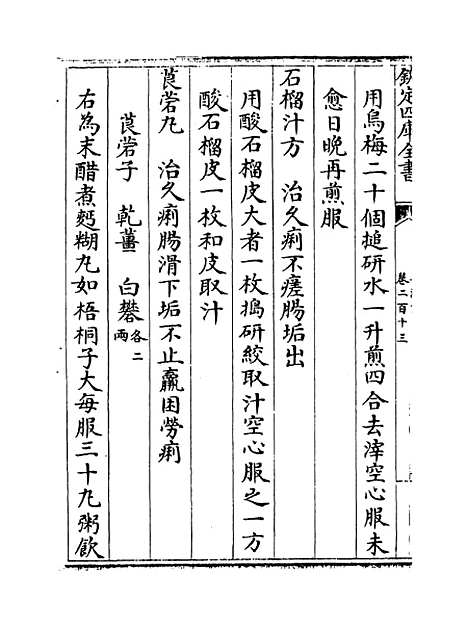 欽定四庫全書
卷二百十三
用烏梅二十個搥研水一升煎四合去滓空心服未
愈日晚再煎服
石榴汁方　治久痢不瘥腸垢出
用酸石榴皮大者一枚搗研絞取汁空心服之一方
酸石榴皮一枚和皮取汁
莨菪丸　治久痢腸滑下垢不止羸困勞痢
莨菪子　乾薑　白礬各二兩
右為末醋煮麪糊丸如梧桐子大每服三十丸粥飲